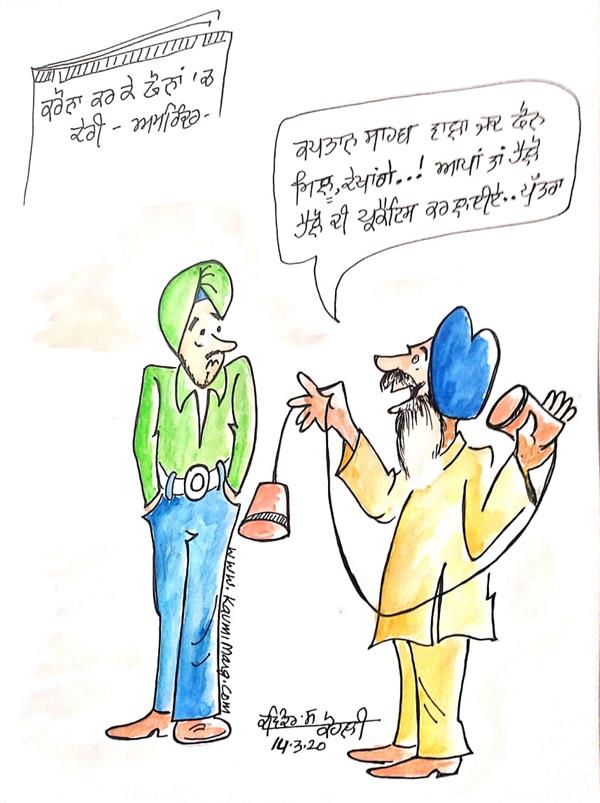 ਕਰੋਨਾ ਕਰ ਕੇ ਫੋਨਾਂ 'ਚ
ਦੇਰੀ - ਅਮਰਿੰਦਰ -
ਕਪਤਾਨ ਸਾਹਬ ਵਾਲਾ ਜਦ ਫੋਨ
ਮਿਲੂ, ਦੇਖਾਂਗੇ..! ਆਪਾਂ ਤਾਂ ਹੈਲੋ
ਹੈਲੋ ਦੀ ਪ੍ਰੈਕਟਿਸ ਕਰ ਲਈਏ.. ਪੁੱਤਰਾ
www.KaumiMarg.com
ਕੋਹਲੀ
14.3.20